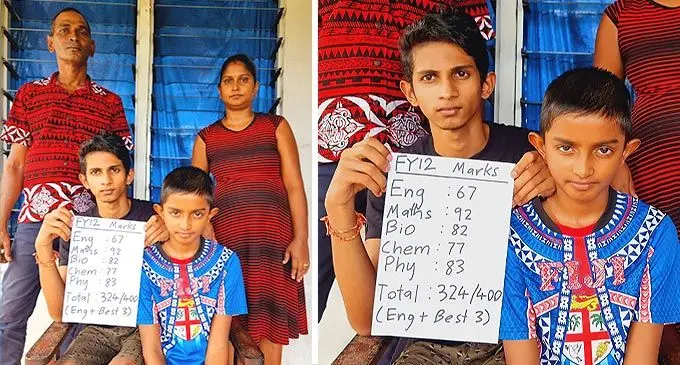 FY12 Marks
Eng : 67
Maths : 92
Bio : 82
Chem : 77
Phy : 83
Total : 324/400
(Eng + Best 3)
FIJI
FY12 Marks
Eng : 67
Maths : 92
Bio : 82
Chem : 77
Phy : 83
Total : 324/400
(Eng + Best 3)
FIJI